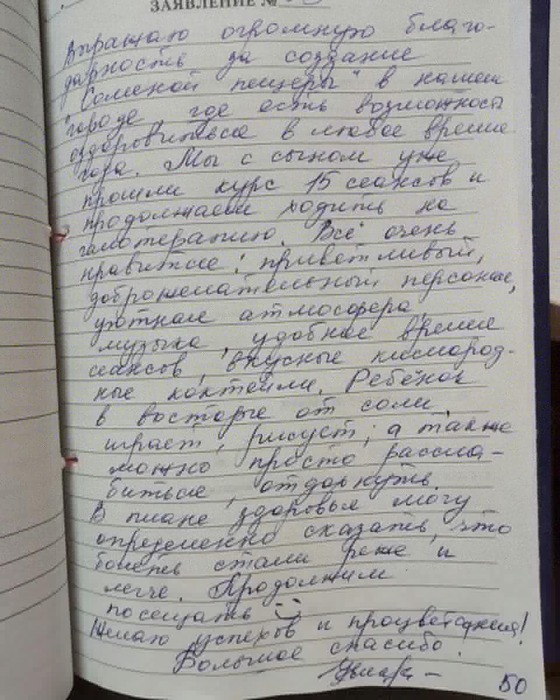 ЗАЯВЛЕНИЕ №
Выражаю огромную благо-
дарность за создание
"Соляной пещеры" в нашем
городе где есть возможность
оздоровиться в любое время
года. Мы с сыном уже
прошли курс 15 сеансов и
продолжаем ходить на
галотерапию. Всё очень
нравится: приветливый,
доброжелательный персонал,
уютная атмосфера,
музыка, удобное время
сеансов, вкусные кислород-
ные коктейли. Ребёнок
в восторге от соли,
играет, рисует, а также
можно просто расслa-
биться, отдохнуть.
В плане здоровья могу
определенно сказать, что
болеть стали реже и
легче. Продолжим
посещать
Желаю успехов и процветания!
Большое спасибо.
50